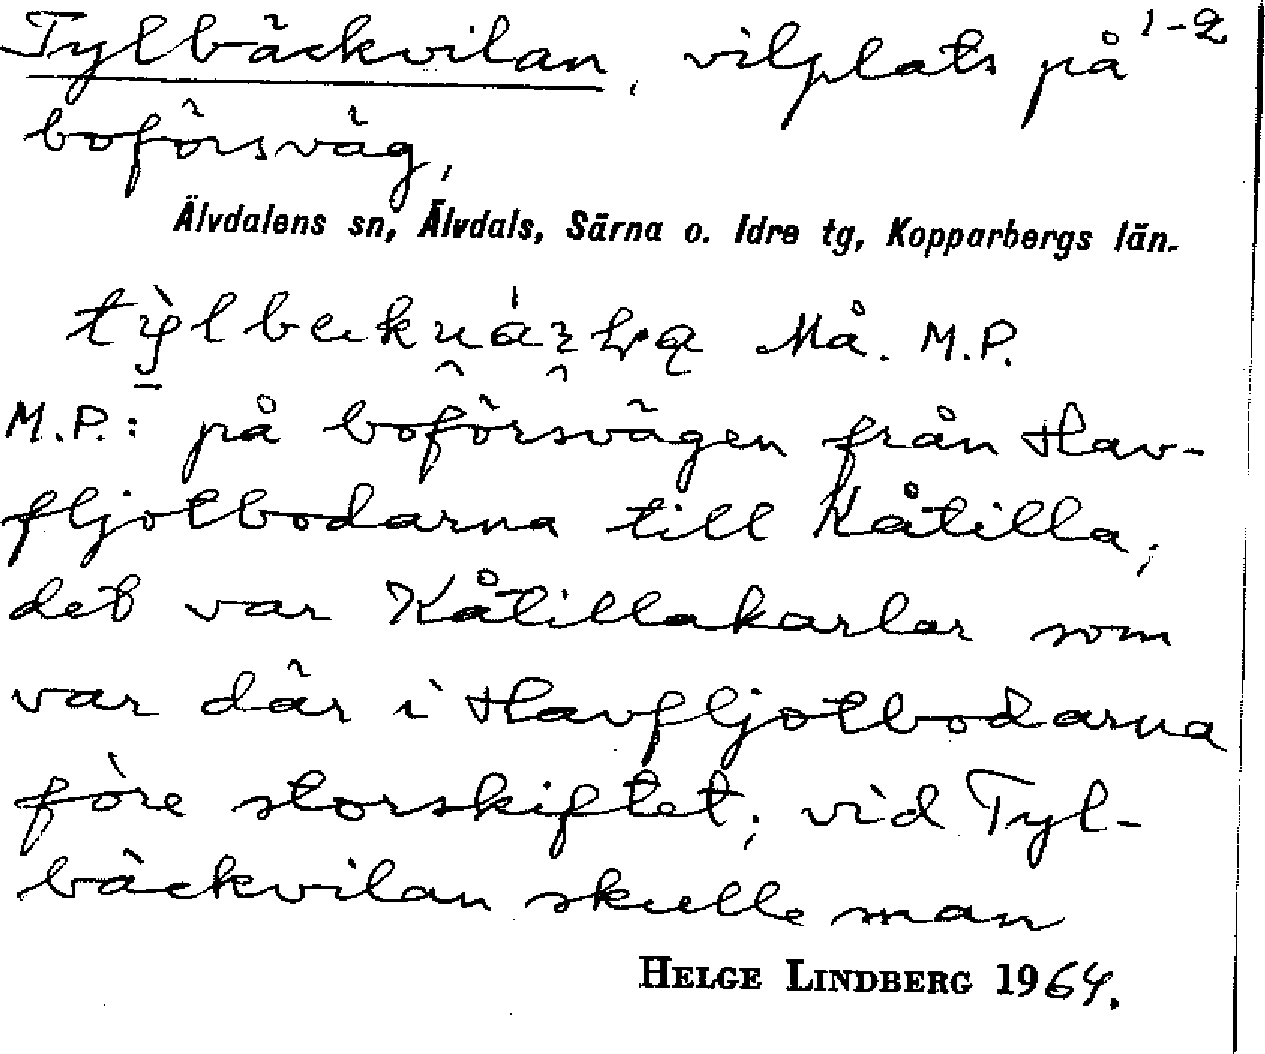 Tylbäckvilan, vilplats på 1-2
boförsväg,
Älvdalens sn, Älvdals, Särna o. Idre tg, Kopparbergs län.
Må. M.P.
M.P.: på boförsvägen från Hav-
fljotbodarna till Kåtilla;
det var Kåtillakarlar som
var där i Havfljotbodarna
före storskiftet; vid Tyl-
bäckvilan skulle man
HELGE LINDBERG 1964.